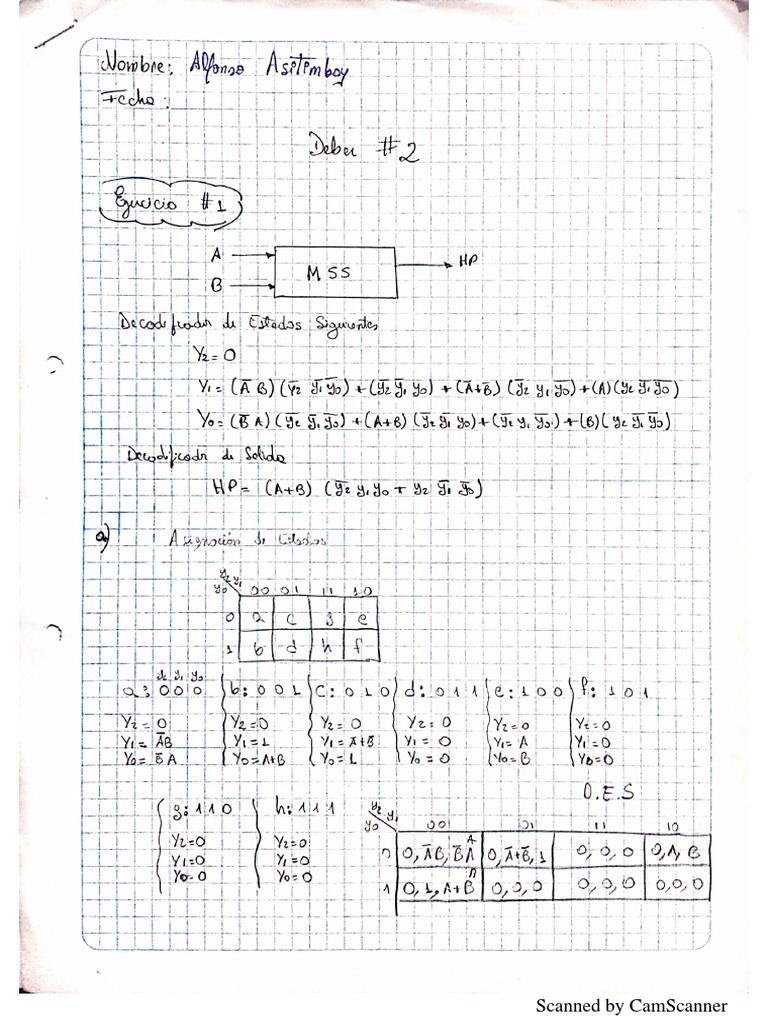 Nombre: Alfonso Asitimbay
Fecha:
Deber #2
Ejercicio #1
A
B
MSS
HP
Decodificador de Estados Siguientes
Y₂ = 0
Y₁ = (A̅ B)(y̅₂ y̅₁ y̅₀) + (y̅₂ y̅₁ y₀) + (A̅+B̅)(y̅₂ y₁ y̅₀) + (A)(y₂ y̅₁ y̅₀)
Y₀ = (B̅ A)(y̅₂ y̅₁ y̅₀) + (A+B)(y̅₂ y̅₁ y₀) + (y̅₂ y₁ y̅₀) + (B)(y₂ y̅₁ y̅₀)
Decodificador de Salida
HP = (A+B) (y̅₂ y₁ y₀ + y₂ y̅₁ y̅₀)
a) Asignación de Estados
y₂ y₁
y₀ 00 01 11 10
0 a c g e
1 b d h f
y₂ y₁ y₀
a: 0 0 0 b: 0 0 1 c: 0 1 0 d: 0 1 1 e: 1 0 0 f: 1 0 1
Y₂ = 0 Y₂=0 Y₂ = 0 Y₂ = 0 Y₂=0 Y₂=0
Y₁ = A̅B Y₁=1 Y₁=A̅+B̅ Y₁ = 0 Y₁= A Y₁=0
Y₀= B̅ A Y₀=A+B Y₀= 1 Y₀ = 0 Y₀= B Y₀=0
D.E.S
g: 1 1 0 h: 1 1 1
Y₂=0 Y₂=0
Y₁=0 Y₁=0
Y₀=0 Y₀=0
y₂ y₁
y₀ 00 01 11 10
0 0, A̅B, B̅A 0, A̅+B̅, 1 0, 0, 0 0, A, B
1 0, 1, A+B 0, 0, 0 0, 0, 0 0, 0, 0
Scanned by CamScanner